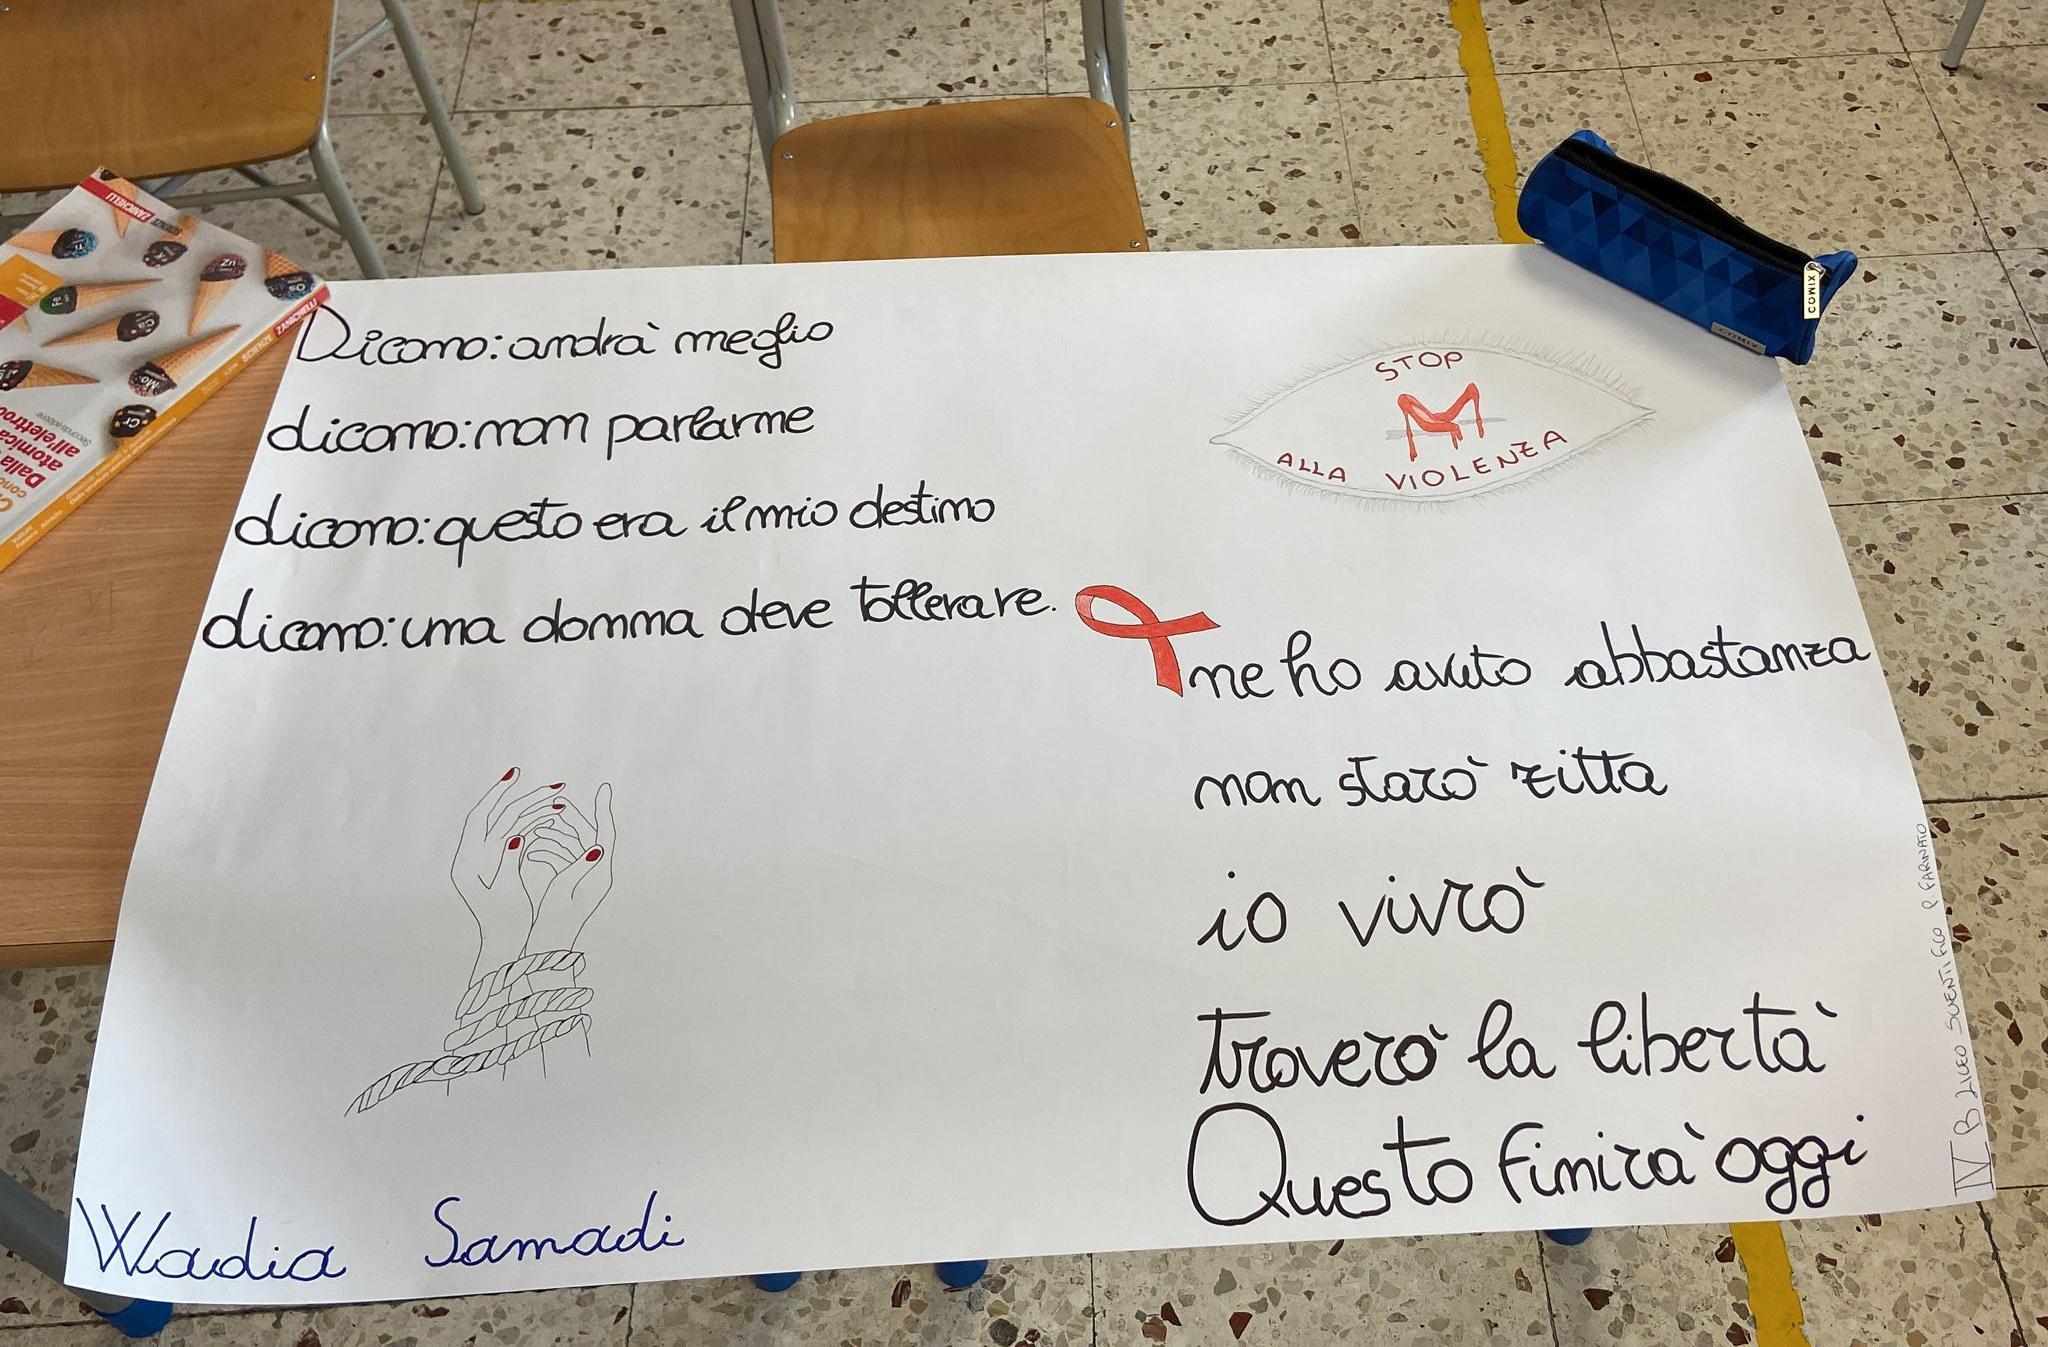 Dicono: andrà meglio
dicono: non parlarne
dicono: questo era il mio destino
dicono: una donna deve tollerare.
STOP
ALLA VIOLENZA
ne ho avuto abbastanza
non starò zitta
io vivrò
troverò la libertà
Questo finirà oggi
Wadia Samadi
IV B LICEO SCIENTIFICO P FARINATO
ZANICHELLI
SCIENZE ZANICHELLI
Dalla
atomica
all'elettro
Seconda edizione
Fe
Zn
Co
Mo
Cr
COMIX
COMIX